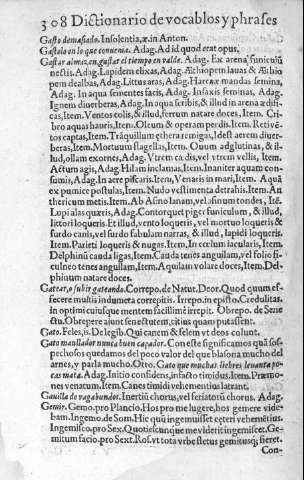 308 Dictionario de vocablos y phrases
Gasto demasiado. Insolentia, æ. in Anton.
Gastalo en lo que conuenia. Adag. Ad id quod erat opus.
Gastar almez, en gastar el tiempo en valde. Adag. Ex arena funiculũ
nectis. Adag. Lapidem elixas, Adag. Æthiopem lauas & Æthio
pem dealbas, Adag. Littus aras, Adag. Harenæ mandas semina,
Adag. In aqua sementes facis, Adag. In saxis seminas, Adag.
Ignem diuerberas, Adag. In aqua scribis, & illud in arena ædifi-
cas, Item. Ventos colis, & illud, ferrum natare doces, Item. Cri-
bro aquas hauris. Item. Oleum & operam perdis. Item. Reti vẽ-
tos captas, Item. Trãquillum æthera remigas, Idest aerem diuer-
beras, Item. Mortuum flagellas, Item. Ouum adglutinas, & il-
lud, ollam exornes, Adag. Vtrem cædis, vel vtrem vellis, Item.
Actum agis, Adag. Hilam inclamas, Item. Inaniter aquam con-
sumis, Adag. In aere piscaris. Item, Venaris in mari, Item. Aquã
ex pumice postulas, Item. Nudo vestimenta detrahis. Item. An
thericum metis. Item. Ab Asino lanam, vel asinum tondes, Itẽ.
Lupi alas quæris, Adag. Contorquet piger funiculum, & illud,
littori loqueris. Et illud, vento loqueris, vel mortuo loqueris &
surdo canis, vel surdo fabulam narras, & illud, lapidi loqueris.
Item. Parieti loqueris & nugas. Item, In cœlum iacularis, Item.
Delphinũ cauda ligas, Item. Cauda tenes anguilam, vel folio fi-
culneo tenes anguilam, Item. Aquilam volare doces, Item. Del-
phinum natare doces.
Gatear, o subir gateando. Correpo. de Natur. Deor. Quod quum ef-
fecere multis indumeta correpitis. Irrepo. in episto. Credulitas.
in optimi cuiusque mentem facillimè irrepit. Obrepo. de Sene
ctu. Obrepere aiunt senectutem, citius quam putassent.
Gato. Feles, is. De legib. Qui canem & felem vt deos colunt.
Gato maullador nunca buen caçador. Con este significamos quã sos-
pechosos quedamos del poco valor del que blasona mucho del
arnes, y parla mucho. Otro. Gato que muchas liebres leuanta po-
cas mata. Adag. Initio confidens, in facto timidus. Item. Præmo-
nes venatum, Item. Canes timidi vehementius latrant.
Gauilla de vagabundos. Inertiũ chorus, vel feriatorũ chorus. Adag.
Gemir. Gemo. pro Plancio. Hos pro me lugere, hos gemere vide-
bam. Ingemo. de Som. Hic quũ ingemuisset ceteri vehemẽtius.
Ingemisco. pro Sex. Quotiescunque me viderit ingemiscet. Ge-
mitum facio. pro Sext. Ros. vt tota vrbe fletus gemitusq; fieret.
Con-